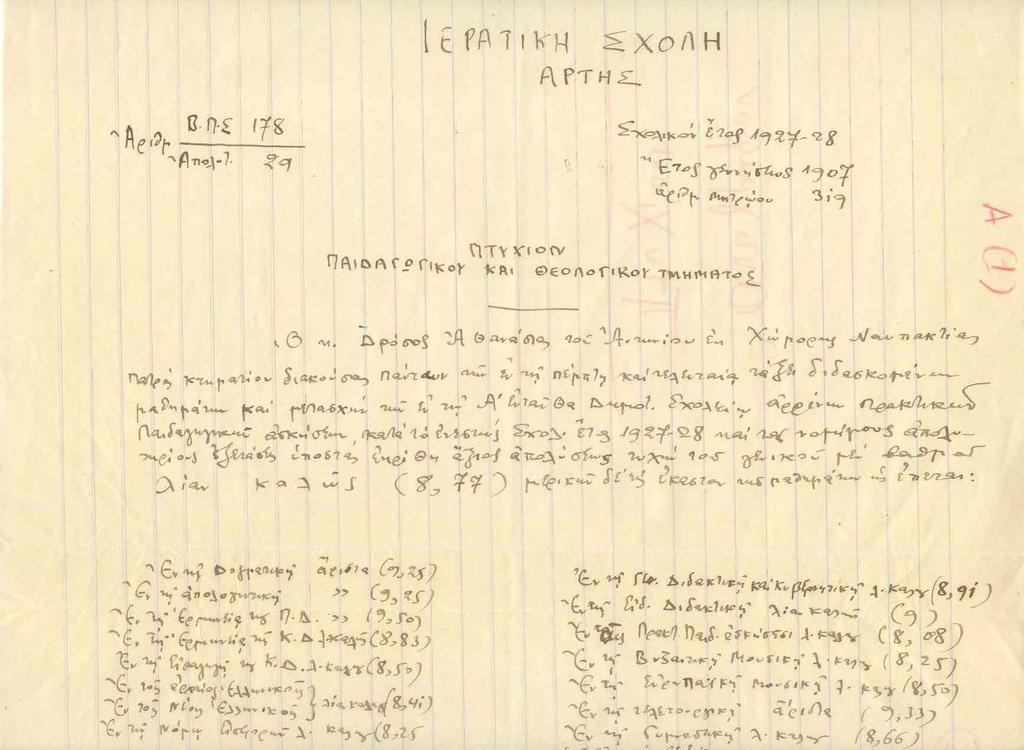 ΙΕΡΑΤΙΚΗ ΣΧΟΛΗ
ΑΡΤΗΣ
Ἀριθμ Β.Π.Σ 178
Ἀπολυτ. 29
Σχολικόν ἔτος 1927-28
Ἔτος γεννήσεως 1907
ἀριθμ μητρώου 319
Α (1)
ΠΤΥΧΙΟΝ
ΠΑΙΔΑΓΩΓΙΚΟΥ ΚΑΙ ΘΕΟΛΟΓΙΚΟΥ ΤΜΗΜΑΤΟΣ
Ὁ κ. Δρόσος Ἀθανάσιος τοῦ Ἀντωνίου ἐκ Χώμορης Ναυπακτίας
πατρός κτηματίου διακούσας πάντων τῶν ἐν τῇ πέμπτῃ καί τελευταίᾳ τάξει διδασκομένων
μαθημάτων καί μετασχών τῶν ἐν τῷ Α' ἐνταῦθα Δημοτ. Σχολείῳ ἀρρένων πρακτικῶν
Παιδαγωγικῶν ἀσκήσεων, κατά τό ἐνεστώς Σχολ. ἔτος 1927-28 καί τάς νομίμους ἀπολυ-
τηρίους ἐξετάσεις ὑποστάς ἐκρίθη ἄξιος ἀπολύσεως τυχών τοῦ γενικοῦ μέν βαθμοῦ
Λίαν καλῶς (8,77) μερικῶν δέ εἰς ἕκαστον τῶν μαθημάτων ὡς ἕπεται:
Ἐν τῇ Δογματικῇ ἄριστα (9,25)
Ἐν τῇ ἀπολογητικῇ " (9,25)
Ἐν τῇ Ἑρμηνείᾳ τῆς Π.Δ. " (9,50)
Ἐν τῇ Ἑρμηνείᾳ τῆς Κ.Δ λ.καλῶς (8,83)
Ἐν τῇ Εἰσαγωγῇ τῆς Κ.Δ. λ. καλῶς (8,50)
Ἐν τοῖς ἀρχαίοις Ἑλληνικοῖς
Ἐν τοῖς Νέοις Ἑλληνικοῖς λίαν καλῶς (8,41)
Ἐν τῇ λ. καλῶς (8,25
Ἐν τῇ Γεν. Διδακτικῇ καί Κυβερνητικῇ λ. καλῶς (8,91)
Ἐν τῇ Εἰδ. Διδακτικῇ λίαν καλῶς (9)
Ἐν ταῖς Πρακτ. Παιδ. ἀσκήσεσι λ. καλῶς (8,08)
Ἐν τῇ Βυζαντινῇ Μουσικῇ λ. καλῶς (8,25)
Ἐν τῇ Εὐρωπαϊκῇ Μουσικῇ λ. καλῶς (8,50)
Ἐν τῇ τελετουργικῇ ἄριστα (9,33)
Ἐν τῇ Γυμναστικῇ λ. καλῶς (8,66)